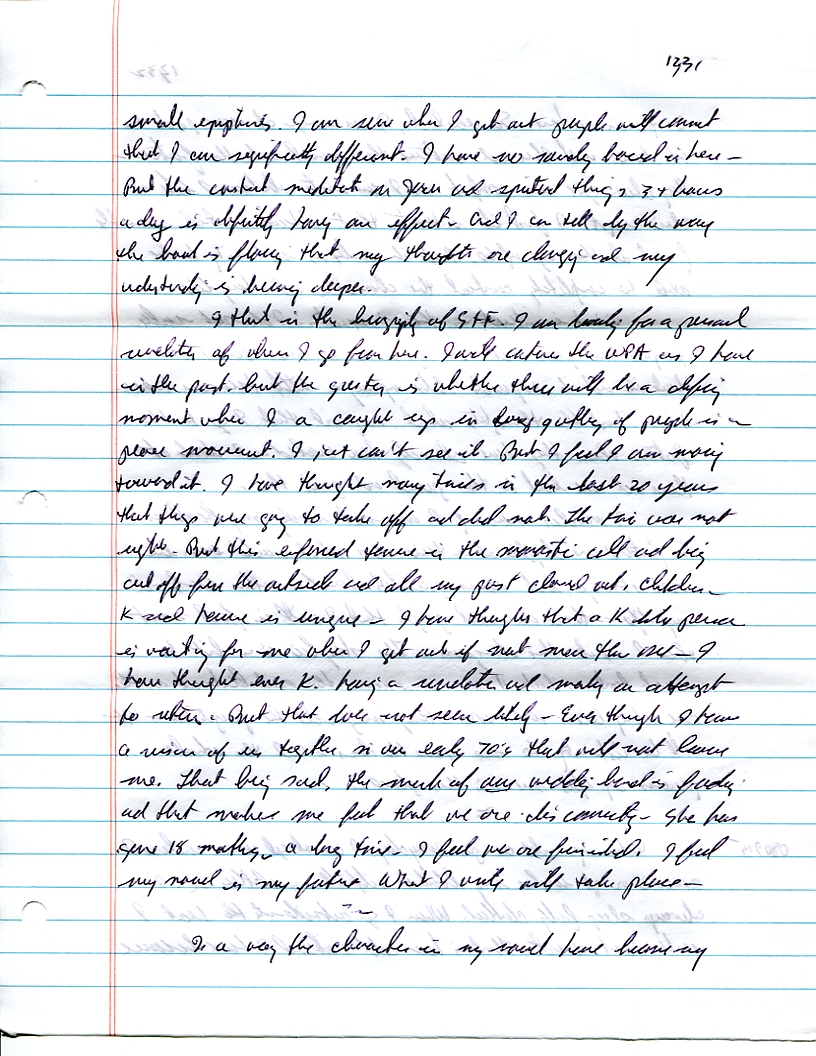 1331
small epiphanies. I am sure when I get out people will comment
that I am significantly different. I have no sounding board in here –
But the constant meditation on Jesus and spiritual things 3+ hours
a day is definitely having an effect. And I can tell by the way
the book is flowing that my thoughts are changing and my
understanding is becoming deeper.
I that is the of I am looking for a personal
revelation of where I go from here. I will the as I have
in the past. but the question is whether there will be a defining
moment when I a caught up in gathering of people in a
peace movement. I just can't see it. But I feel I am moving
toward it. I have thought many times in the last 20 years
that things were going to take off and did not. The time was not
right – But this enforced tenure in the monastic cell and being
cut off from the outside and all my past closed out, children –
K and home is unique – I have thought that a K like person
is waiting for me when I get out if not more than one – I
have thought even K. having a revelation and making an attempt
to return. But that does not seem likely – Even though I have
a vision of us together in our early 70's that will not leave
me. That being said, the mark of my wedding band is fading
and that makes me feel that we are disconnecting – She has
gone 18 months, a long time – I feel we are finished. I feel
my novel is my future. What I write will take place –
In a way the characters in my novel have become my